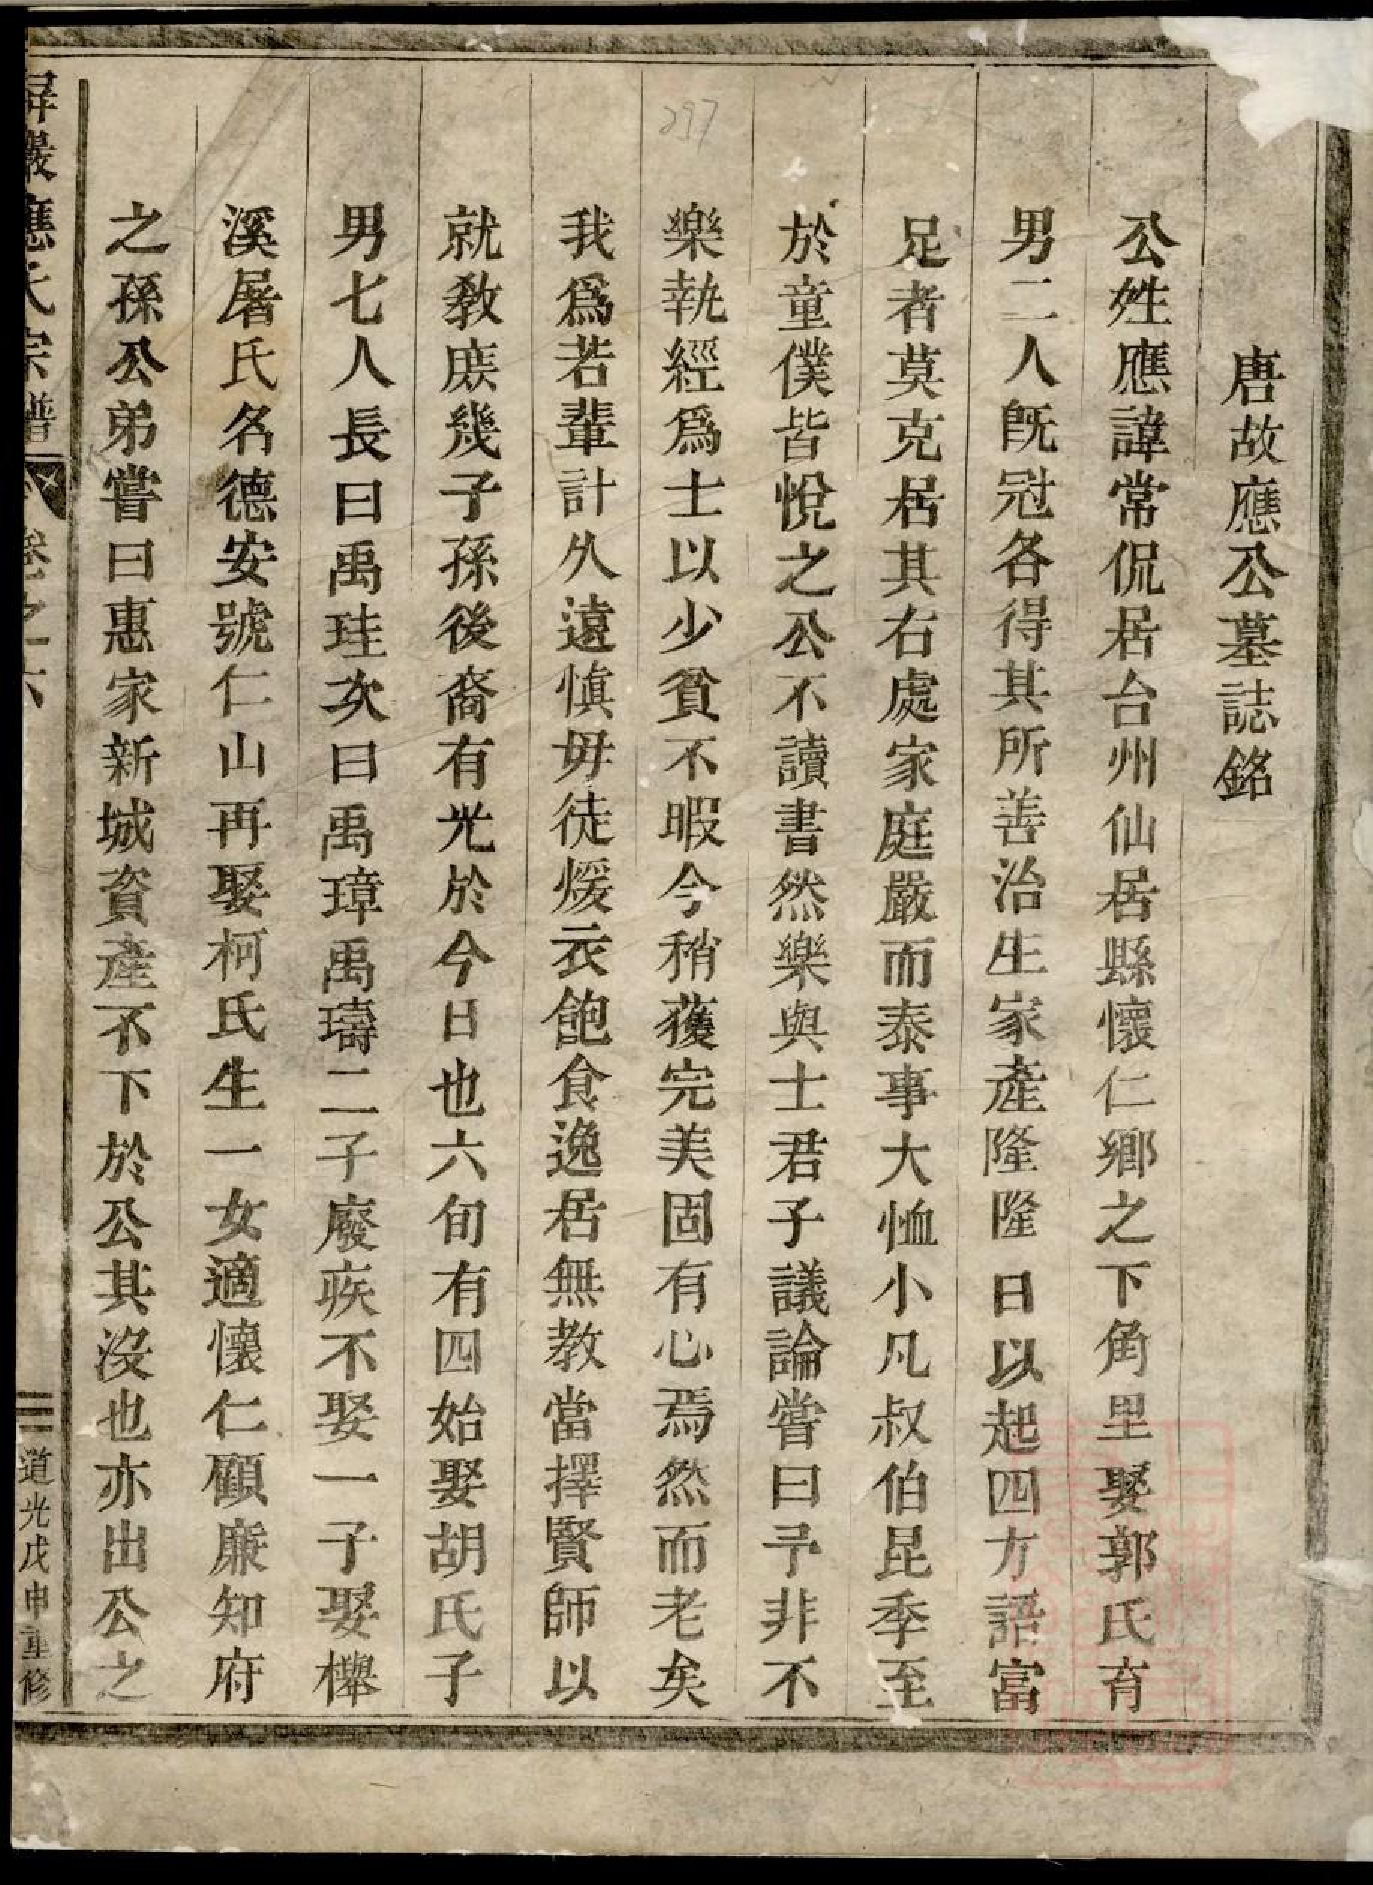 唐故應公墓誌銘
公姓應諱常侃居台州仙居縣懷仁鄉之下角里娶郭氏育
男二人旣冠各得其所善治生家產隆隆日以起四方語富
足者莫克居其右處家庭嚴而泰事大恤小凡叔伯昆季至
於童僕皆悅之公不讀書然樂與士君子議論嘗曰予非不
樂執經爲士以少貧不暇今稍獲完美固有心焉然而老矣
我爲若輩計久遠愼毋徒煖衣飽食逸居無教當擇賢師以
就敎庶幾子孫後裔有光於今日也六旬有四始娶胡氏子
男七人長曰禹珪次曰禹璋禹璹二子廢疾不娶一子娶櫸
溪屠氏名德安號仁山再娶柯氏生一女適懷仁顧廉知府
之孫公弟嘗曰惠家新城資產不下於公其沒也亦出公之
屏巖應氏宗譜
卷之六
道光戊申重修
297